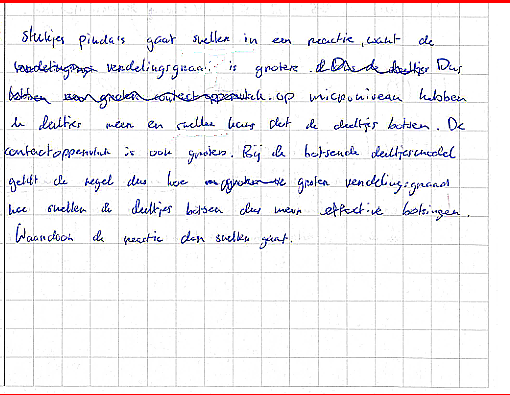 stukjes pinda's gaat sneller in een reactie, want de
verdelingsgraad is groter. Dus
op microniveau hebben
de deeltjes meer en sneller kans dat de deeltjes botsen. De
contactoppervlak is ook groter. Bij de botsende deeltjesmodel
geldt de regel dus hoe groter verdelingsgraad
hoe sneller de deeltjes botsen dus meer effective botsingen.
Waardoor de reactie dan sneller gaat.